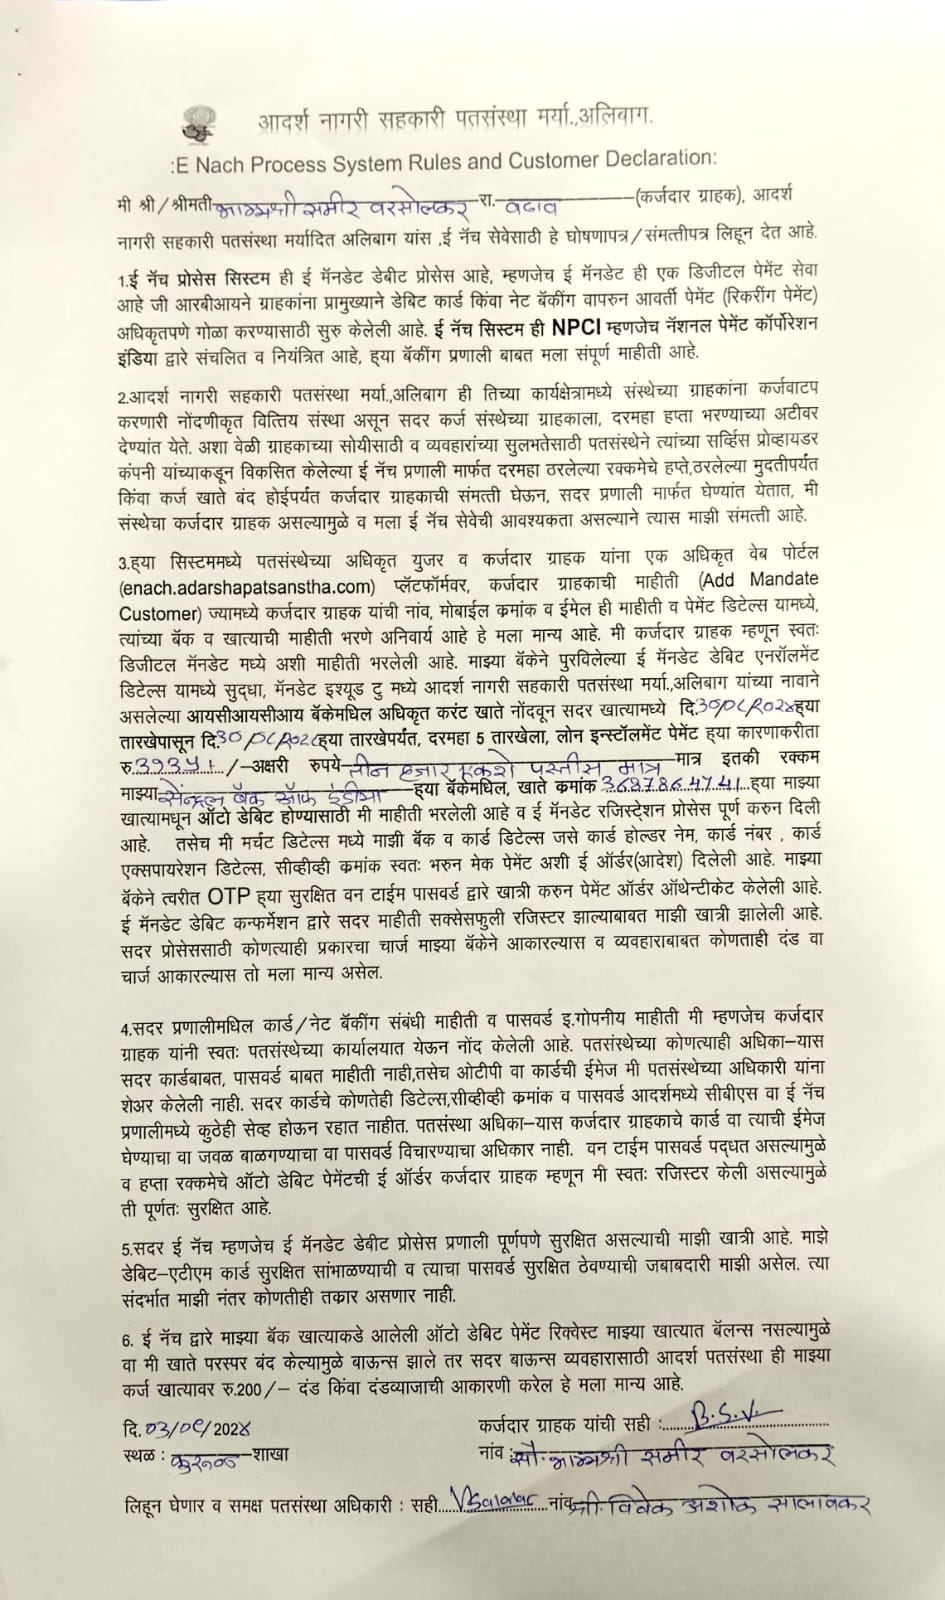 आदर्श नागरी सहकारी पतसंस्था मर्या.,अलिबाग.
:E Nach Process System Rules and Customer Declaration:
मी श्री/श्रीमती भाग्यश्री समीर वरसोलकर रा. वढाव (कर्जदार ग्राहक), आदर्श
नागरी सहकारी पतसंस्था मर्यादित अलिबाग यांस ,ई नॅच सेवेसाठी हे घोषणापत्र/संमत्तीपत्र लिहून देत आहे.
1.ई नॅच प्रोसेस सिस्टम ही ई मॅनडेट डेबीट प्रोसेस आहे, म्हणजेच ई मॅनडेट ही एक डिजीटल पेमेंट सेवा
आहे जी आरबीआयने ग्राहकांना प्रामुख्याने डेबिट कार्ड किंवा नेट बॅकींग वापरुन आवर्ती पेमेंट (रिकरींग पेमेंट)
अधिकृतपणे गोळा करण्यासाठी सुरु केलेली आहे. ई नॅच सिस्टम ही NPCI म्हणजेच नॅशनल पेमेंट कॉर्पोरेशन
इंडिया द्वारे संचलित व नियंत्रित आहे, ह्या बॅकींग प्रणाली बाबत मला संपूर्ण माहीती आहे.
2.आदर्श नागरी सहकारी पतसंस्था मर्या.,अलिबाग ही तिच्या कार्यक्षेत्रामध्ये संस्थेच्या ग्राहकांना कर्जवाटप
करणारी नोंदणीकृत वित्तिय संस्था असून सदर कर्ज संस्थेच्या ग्राहकाला, दरमहा हप्ता भरण्याच्या अटीवर
देण्यांत येते. अशा वेळी ग्राहकाच्या सोयीसाठी व व्यवहारांच्या सुलभतेसाठी पतसंस्थेने त्यांच्या सर्व्हिस प्रोव्हायडर
कंपनी यांच्याकडून विकसित केलेल्या ई नॅच प्रणाली मार्फत दरमहा ठरलेल्या रक्कमेचे हप्ते,ठरलेल्या मुदतीपर्यंत
किंवा कर्ज खाते बंद होईपर्यंत कर्जदार ग्राहकाची संमत्ती घेऊन, सदर प्रणाली मार्फत घेण्यांत येतात, मी
संस्थेचा कर्जदार ग्राहक असल्यामुळे व मला ई नॅच सेवेची आवश्यकता असल्याने त्यास माझी संमत्ती आहे.
3.ह्या सिस्टममध्ये पतसंस्थेच्या अधिकृत युजर व कर्जदार ग्राहक यांना एक अधिकृत वेब पोर्टल
(enach.adarshapatsanstha.com) प्लॅटफॉर्मवर, कर्जदार ग्राहकाची माहीती (Add Mandate
Customer) ज्यामध्ये कर्जदार ग्राहक यांची नांव, मोबाईल क्रमांक व ईमेल ही माहीती व पेमेंट डिटेल्स यामध्ये,
त्यांच्या बॅक व खात्याची माहीती भरणे अनिवार्य आहे हे मला मान्य आहे. मी कर्जदार ग्राहक म्हणून स्वतः
डिजीटल मॅनडेट मध्ये अशी माहीती भरलेली आहे. माझ्या बॅकेने पुरविलेल्या ई मॅनडेट डेबिट एनरॉलमेंट
डिटेल्स यामध्ये सुद्धा, मॅनडेट इश्यूड टु मध्ये आदर्श नागरी सहकारी पतसंस्था मर्या.,अलिबाग यांच्या नावाने
असलेल्या आयसीआयसीआय बॅकेमधिल अधिकृत करंट खाते नोंदवून सदर खात्यामध्ये दि.30/08/2024ह्या
तारखेपासून दि.30/08/2028ह्या तारखेपर्यंत, दरमहा 5 तारखेला, लोन इन्स्टॉलमेंट पेमेंट ह्या कारणाकरीता
रु. /-अक्षरी रुपये तीन हजार एकशे पस्तीस मात्र मात्र इतकी रक्कम
माझ्या सेंन्ट्रल बॅक ऑफ इंडीया ह्या बॅकेमधिल, खाते क्रमांक 3687864741 ह्या माझ्या
खात्यामधून ऑटो डेबिट होण्यासाठी मी माहीती भरलेली आहे व ई मॅनडेट रजिस्ट्रेशन प्रोसेस पूर्ण करुन दिली
आहे. तसेच मी मर्चंट डिटेल्स मध्ये माझी बॅक व कार्ड डिटेल्स जसे कार्ड होल्डर नेम, कार्ड नंबर , कार्ड
एक्सपायरेशन डिटेल्स, सीव्हीव्ही क्रमांक स्वतः भरुन मेक पेमेंट अशी ई ऑर्डर(आदेश) दिलेली आहे. माझ्या
बॅकेने त्वरीत OTP ह्या सुरक्षित वन टाईम पासवर्ड द्वारे खात्री करुन पेमेंट ऑर्डर ऑथेन्टीकेट केलेली आहे.
ई मॅनडेट डेबिट कन्फर्मेशन द्वारे सदर माहीती सक्सेसफुली रजिस्टर झाल्याबाबत माझी खात्री झालेली आहे.
सदर प्रोसेससाठी कोणत्याही प्रकारचा चार्ज माझ्या बॅकेने आकारल्यास व व्यवहाराबाबत कोणताही दंड वा
चार्ज आकारल्यास तो मला मान्य असेल.
4.सदर प्रणालीमधिल कार्ड/नेट बॅकींग संबंधी माहीती व पासवर्ड इ.गोपनीय माहीती मी म्हणजेच कर्जदार
ग्राहक यांनी स्वतः पतसंस्थेच्या कार्यालयात येऊन नोंद केलेली आहे. पतसंस्थेच्या कोणत्याही अधिका-यास
सदर कार्डबाबत, पासवर्ड बाबत माहीती नाही,तसेच ओटीपी वा कार्डची ईमेज मी पतसंस्थेच्या अधिकारी यांना
शेअर केलेली नाही. सदर कार्डचे कोणतेही डिटेल्स,सीव्हीव्ही क्रमांक व पासवर्ड आदर्शमध्ये सीबीएस वा ई नॅच
प्रणालीमध्ये कुठेही सेव्ह होऊन रहात नाहीत. पतसंस्था अधिका-यास कर्जदार ग्राहकाचे कार्ड वा त्याची ईमेज
घेण्याचा वा जवळ बाळगण्याचा वा पासवर्ड विचारण्याचा अधिकार नाही. वन टाईम पासवर्ड पद्धत असल्यामुळे
व हप्ता रक्कमेचे ऑटो डेबिट पेमेंटची ई ऑर्डर कर्जदार ग्राहक म्हणून मी स्वतः रजिस्टर केली असल्यामुळे
ती पूर्णतः सुरक्षित आहे.
5.सदर ई नॅच म्हणजेच ई मॅनडेट डेबीट प्रोसेस प्रणाली पूर्णपणे सुरक्षित असल्याची माझी खात्री आहे. माझे
डेबिट-एटीएम कार्ड सुरक्षित सांभाळण्याची व त्याचा पासवर्ड सुरक्षित ठेवण्याची जबाबदारी माझी असेल. त्या
संदर्भात माझी नंतर कोणतीही तक्रार असणार नाही.
6. ई नॅच द्वारे माझ्या बॅक खात्याकडे आलेली ऑटो डेबिट पेमेंट रिक्वेस्ट माझ्या खात्यात बॅलन्स नसल्यामुळे
वा मी खाते परस्पर बंद केल्यामुळे बाऊन्स झाले तर सदर बाऊन्स व्यवहारासाठी आदर्श पतसंस्था ही माझ्या
कर्ज खात्यावर रु.200/- दंड किंवा दंडव्याजाची आकारणी करेल हे मला मान्य आहे.
दि.03/09/2024 कर्जदार ग्राहक यांची सही : B.S.V.
स्थळ : कुरूळ -शाखा नांव :सौ. भाग्यश्री समीर वरसोलकर
लिहून घेणार व समक्ष पतसंस्था अधिकारी : सही नांव श्री. विवेक अशोक सालावकर